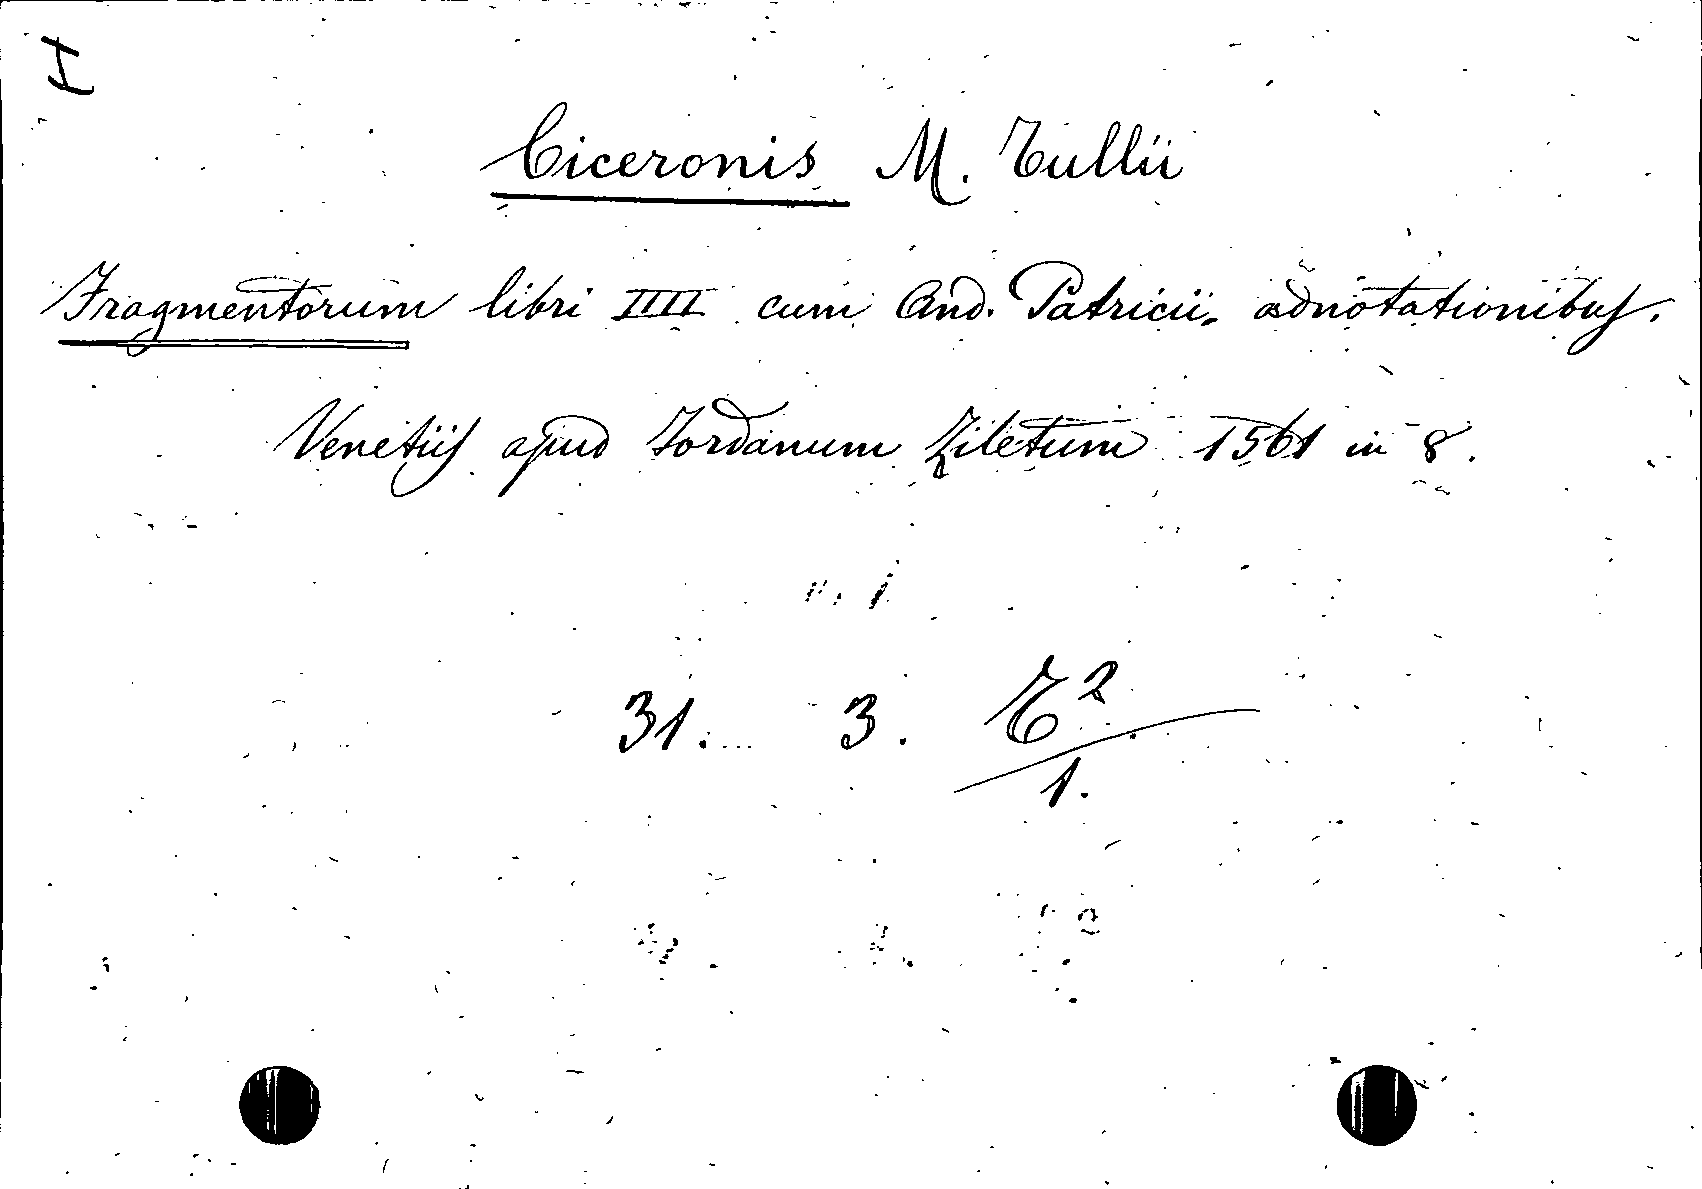 I
Ciceronis M. Tullii
Fragmentorum libri IIII cum And. Patricii adnotationibus.
Venetiis apud Jordanum Ziletum 1561 in 8.
31. 3. T²
1.